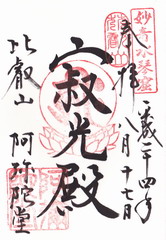 妙音水琴窟
平成二十四年
八月十七日
奉拝
寂光殿
比叡山
阿弥陀堂